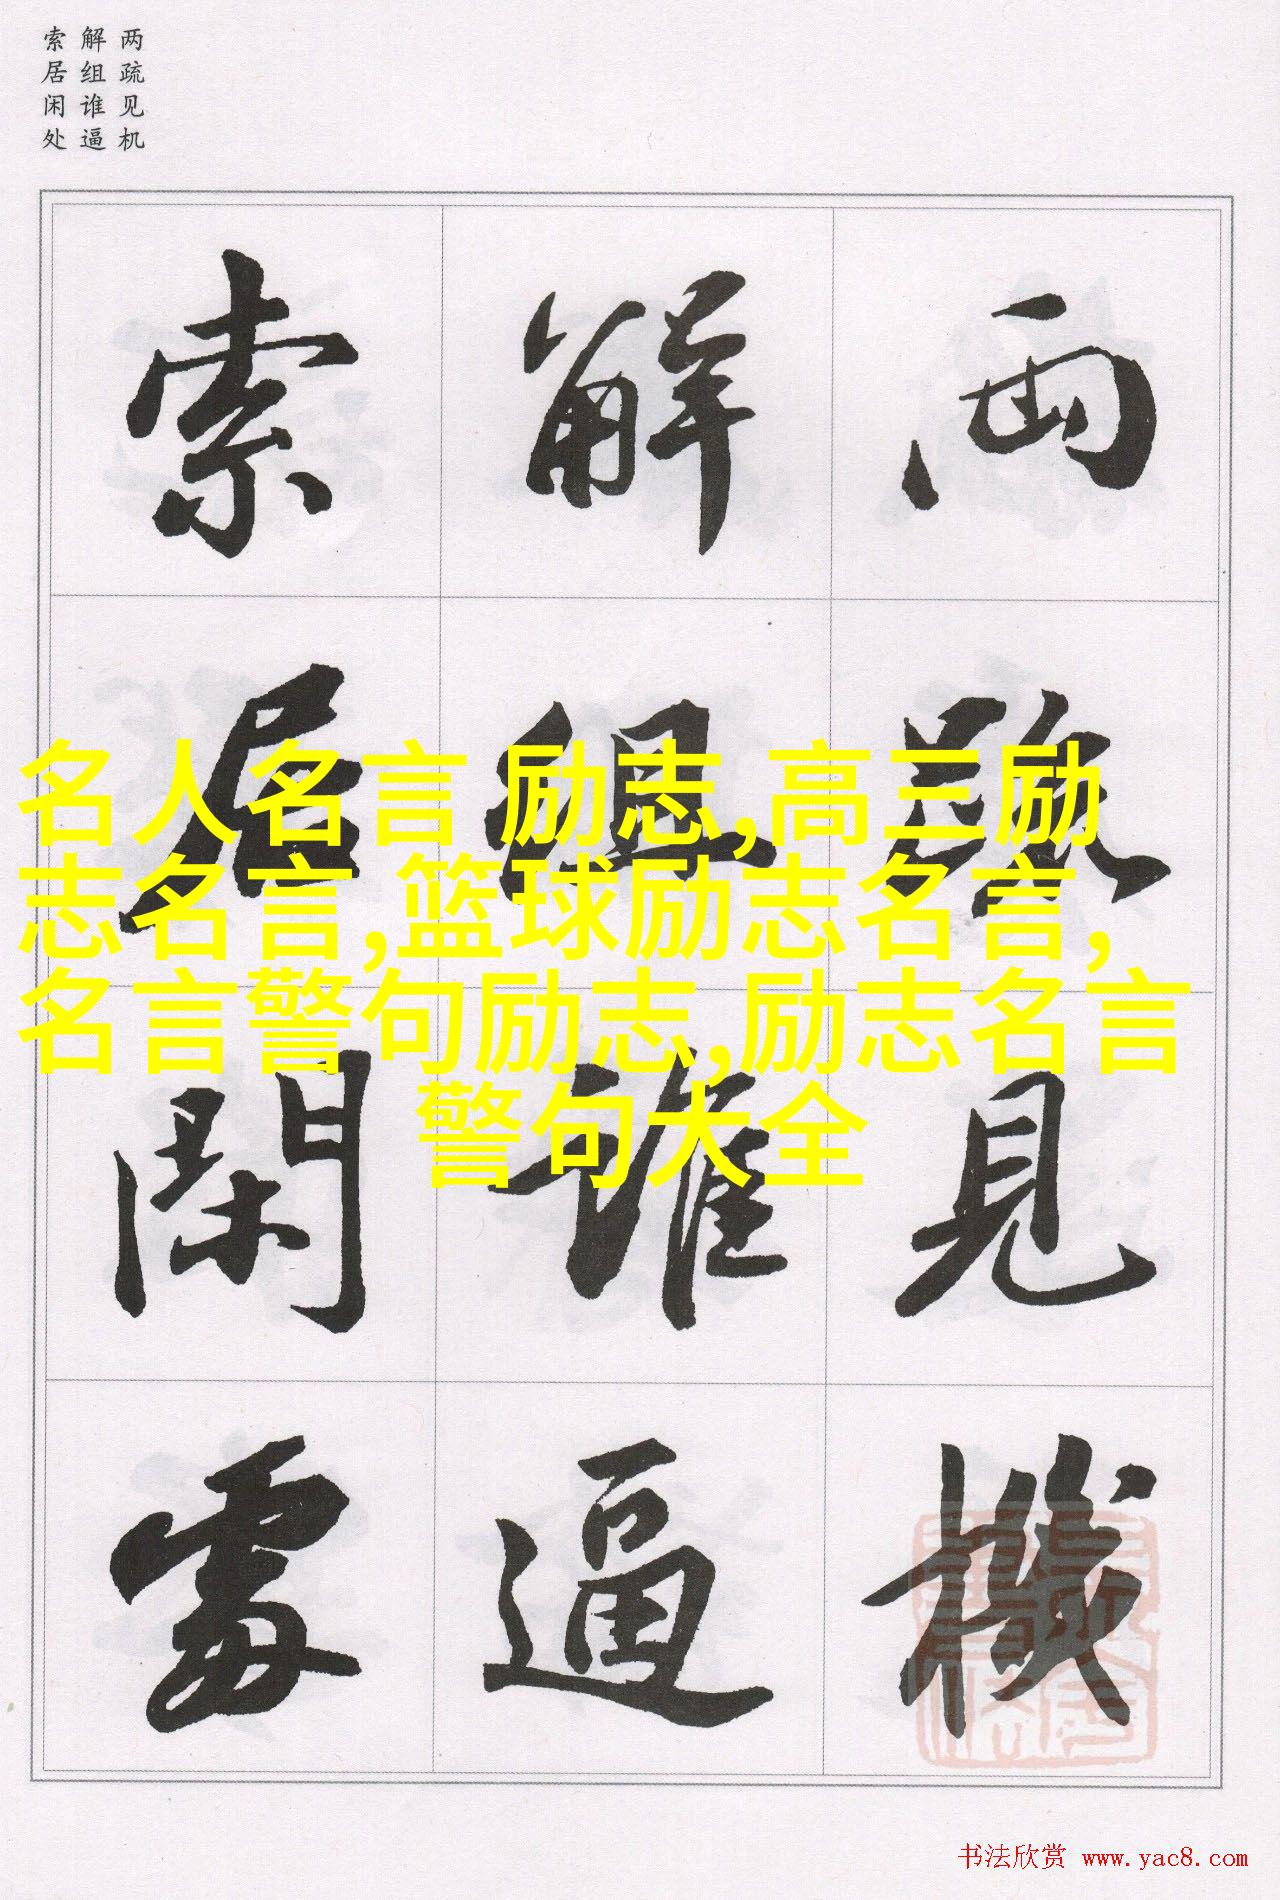 两疏见机
解组谁逼
索居闲处
兩疏見機
解組誰逼
索居閑處
名人名言 励志,高三励
志名言,篮球励志名言,
名言警句励志,励志名言
警句大全
书法欣赏 www.yac8.com